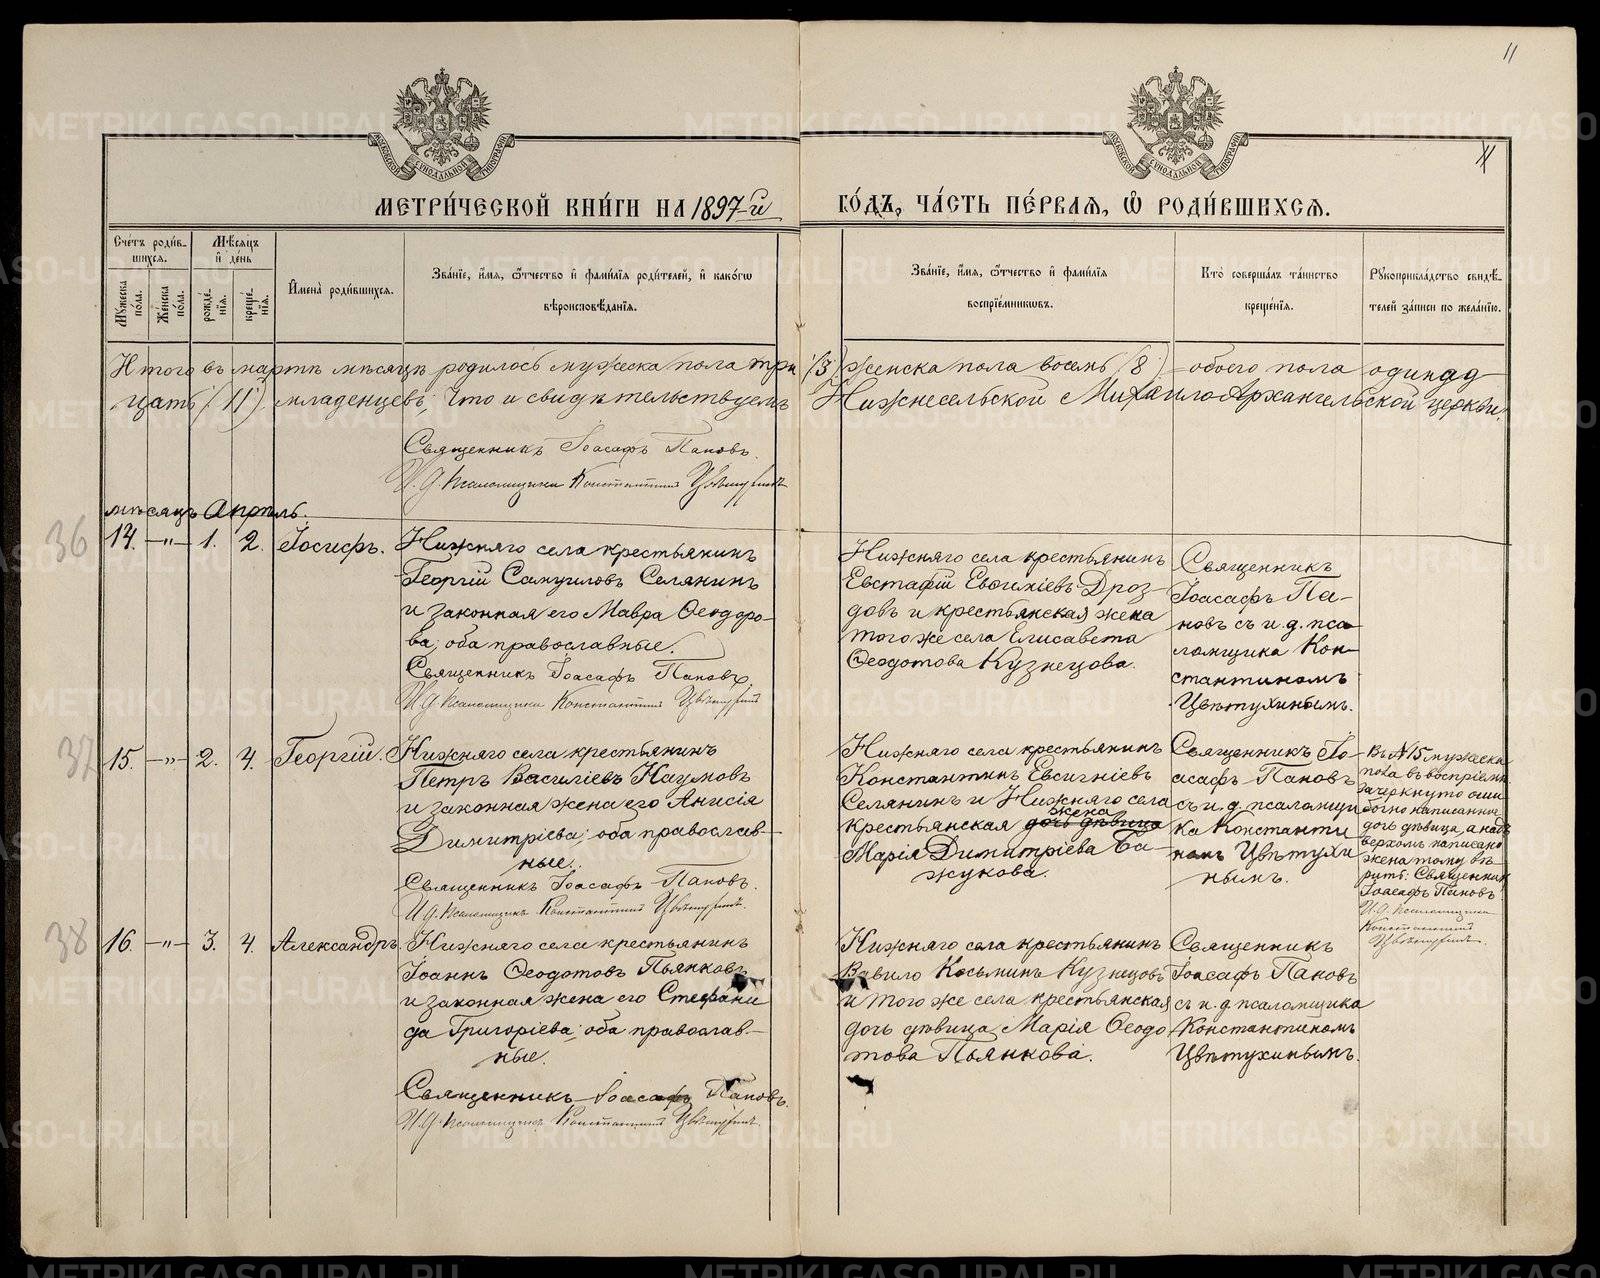 11
11
МЕТРИ́ЧЕСКОЙ КНИ́ГИ НА 1897-й
ГО́ДЪ, ЧА́СТЬ ПЕ́РВАЯ, Ѡ РОДИ́ВШИХСЯ.
МОСКОВСКОЙ СѴНОДАЛЬНОЙ ТИПОГРАФІИ
МОСКОВСКОЙ СѴНОДАЛЬНОЙ ТИПОГРАФІИ
Сче́тъ роди́в-
шихся.
Мѣ́сяцъ
и҆ де́нь
Му́жеска
по́ла.
Же́нска
по́ла.
рожде́-
нїя.
креще́-
нїя.
И҆мена̀ роди́вшихся.
Зва́нїе, и҆́мя, ѻ҆́тчество и҆ фами́лїя роди́телей, и҆ како́гѡ
вѣроисповѣ́данїя.
Зва́нїе, и҆́мя, ѻ҆́тчество и҆ фами́лїя
воспрїе́мниковъ.
Кто̀ соверша́лъ та́инство
креще́нїя.
Рукоприкла́дство свидѣ́-
телей за́писи по жела́нїю.
Итого въ мартѣ мѣсяцѣ родилось мужеска пола три (3) женска пола восемь (8) обоего пола одинад
цать (11) младенцевъ, Что и свидѣтельствуемъ Нижнесельской Михаило-Архангельской церкви:
Священникъ Іоасафъ Пановъ.
И. д. псаломщика Константинъ Цвѣтухинъ
мѣсяцъ Апрѣль.
36
14. —"— 1. 2. Іосифъ.
Нижняго села крестьянинъ
Георгій Самуиловъ Селянинъ
и законная его Мавра Ѳеодоро-
ва; оба православные.
Священникъ Іоасафъ Пановъ.
И. д. псаломщика Константинъ Цвѣтухинъ
Нижняго села крестьянинъ
Евстафій Евѳиміевъ Дроз-
довъ и крестьянская жена
того же села Елисавета
Ѳеодотова Кузнецова.
Священникъ
Іоасафъ Па-
новъ съ и. д. пса-
ломщика Кон-
стантиномъ
Цвѣтухинымъ.
37
15. —"— 2. 4. Георгій.
Нижняго села крестьянинъ
Петръ Василіевъ Наумовъ
и законная жена его Анисія
Димитріева; оба православ-
ные.
Священникъ Іоасафъ Пановъ.
И. д. псаломщика Константинъ Цвѣтухинъ.
Нижняго села крестьянинъ
Константинъ Евсигніевъ
Селянинъ и Нижняго села
жена
крестьянская дочь дѣвица
Марія Димитріева Ба-
жукова.
Священникъ Іо-
асафъ Пановъ
съ и. д. псаломщи
ка Константи
номъ Цвѣтухи
нымъ.
Въ №15 мужеска
пола въ воспріемн
зачеркнуто оши
бочно написанное
дочь дѣвица, а надъ
верхомъ написано
жена тому вѣ-
рить: Священникъ
Іоасафъ Пановъ
И. д. псаломщика
Константинъ
Цвѣтухинъ.
38
16. —"— 3. 4. Александръ.
Нижняго села крестьянинъ
Іоаннъ Ѳеодотовъ Пьянковъ
и законная жена его Стефани
да Григоріева; оба православ-
ные.
Священникъ Іоасафъ Пановъ.
И. д. псаломщика Константинъ Цвѣтухинъ.
Нижняго села крестьянинъ
Вавило Косьминъ Кузнецовъ
и того же села крестьянская
дочь дѣвица Марія Ѳеодо
това Пьянкова.
Священникъ
Іоасафъ Пановъ
съ и. д. псаломщика
Константиномъ
Цвѣтухинымъ.
METRIKI.GASO-URAL.RU